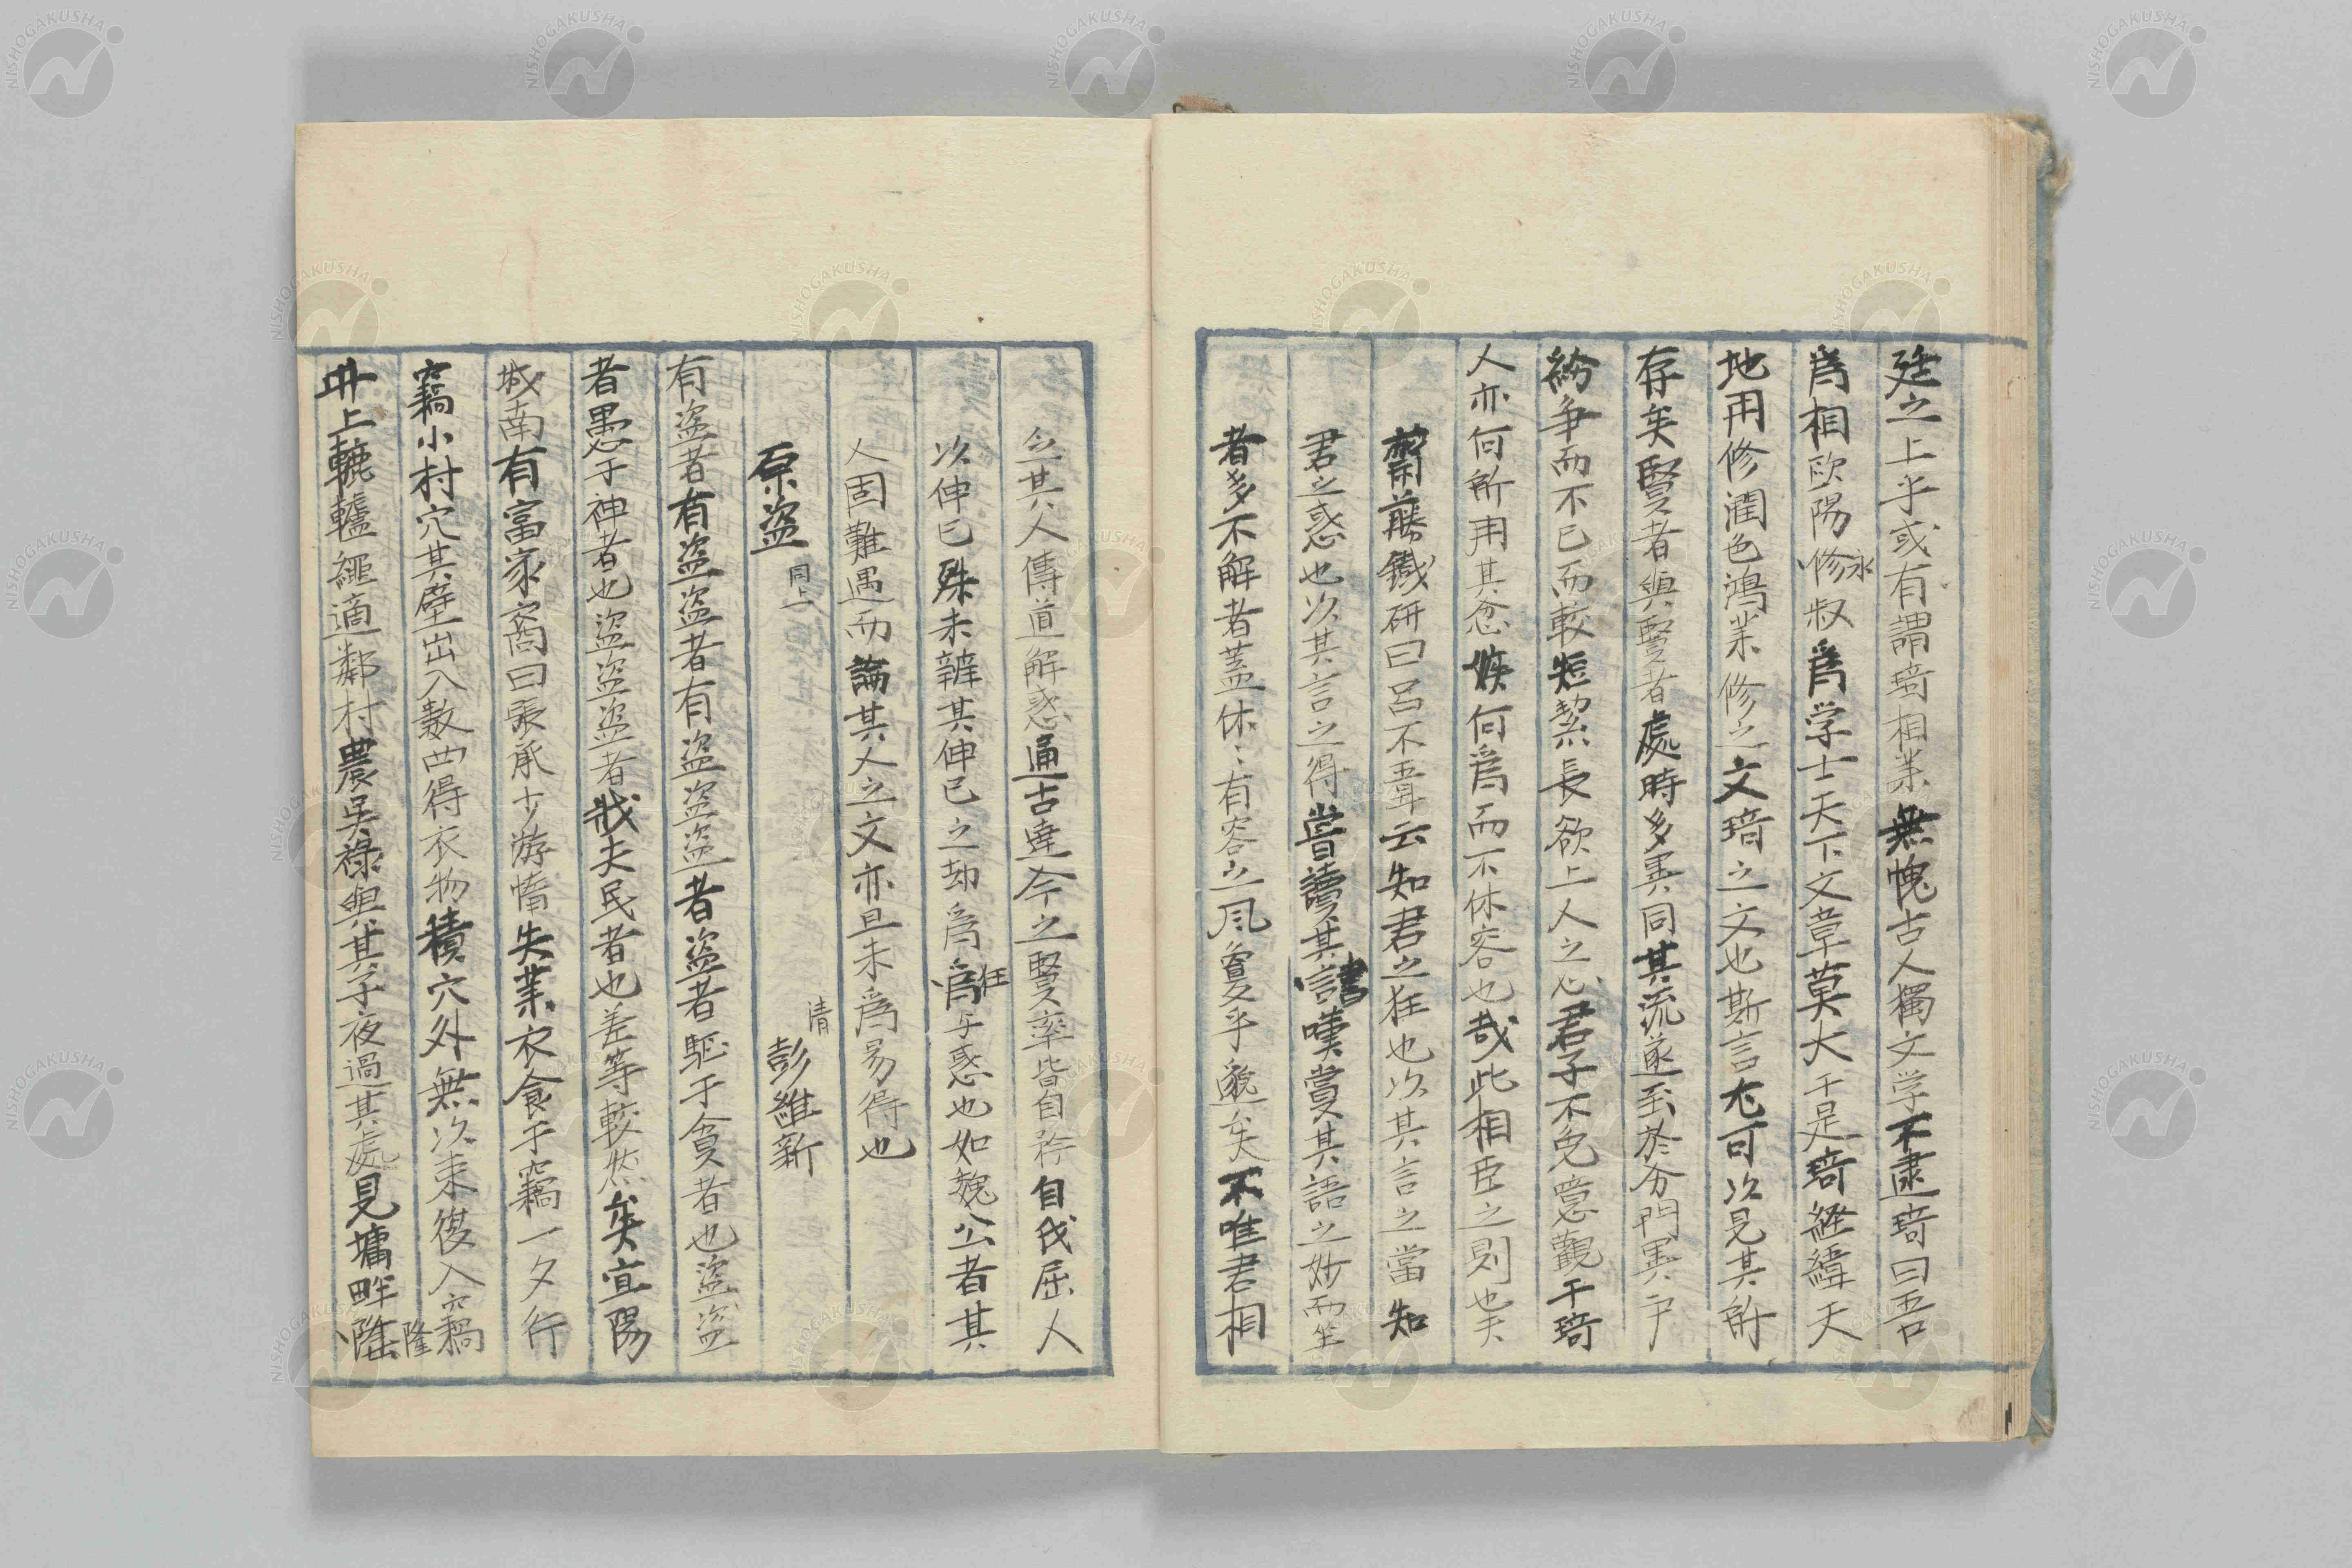 廷之上乎或有謂琦相業無愧古人獨文学不逮琦曰吾
爲相欧陽修永叔爲学士天下文章莫大于是琦経緯天
地用修潤色鴻業修之文琦之文也斯言尤可以見其所
存矣賢者與賢者處時多異同其流遂至於分門異戸
紛争而不已而較短絜長欲上人之心君子不免噫觀于琦
人亦何所用其忿嫉何爲而不休容也哉此相臣之則也夫
齋藤鐡研曰呂不韋云知君之狂也以其言之當知
君之惑也以其言之得嘗讀其書嘆賞其語之妙而坐
者多不解者蓋休〻有容之風敻乎邈矣不唯君相
之其人傳道解惑通古達今之賢率皆自矜自伐屈人
以伸已殊未辨其伸已之却爲狂与惑也如魏公者其
人固難遇而論其人之文亦且未爲易得也
原盗 同上 清 彭維新
有盗者有盗盗者有盗盗盗者盗者駈于貪者也盗盗
者愚于神者也盗盗盗者戕夫民者也差等較然矣宜陽
城南有富家裔曰張承少游惰失業衣食于竊一夕行
竊小村穴其壁出入数四得衣物積穴外無以束復入竊
井上轆轤縄適鄰村農呉禄與其子夜過其處見墉畔隆